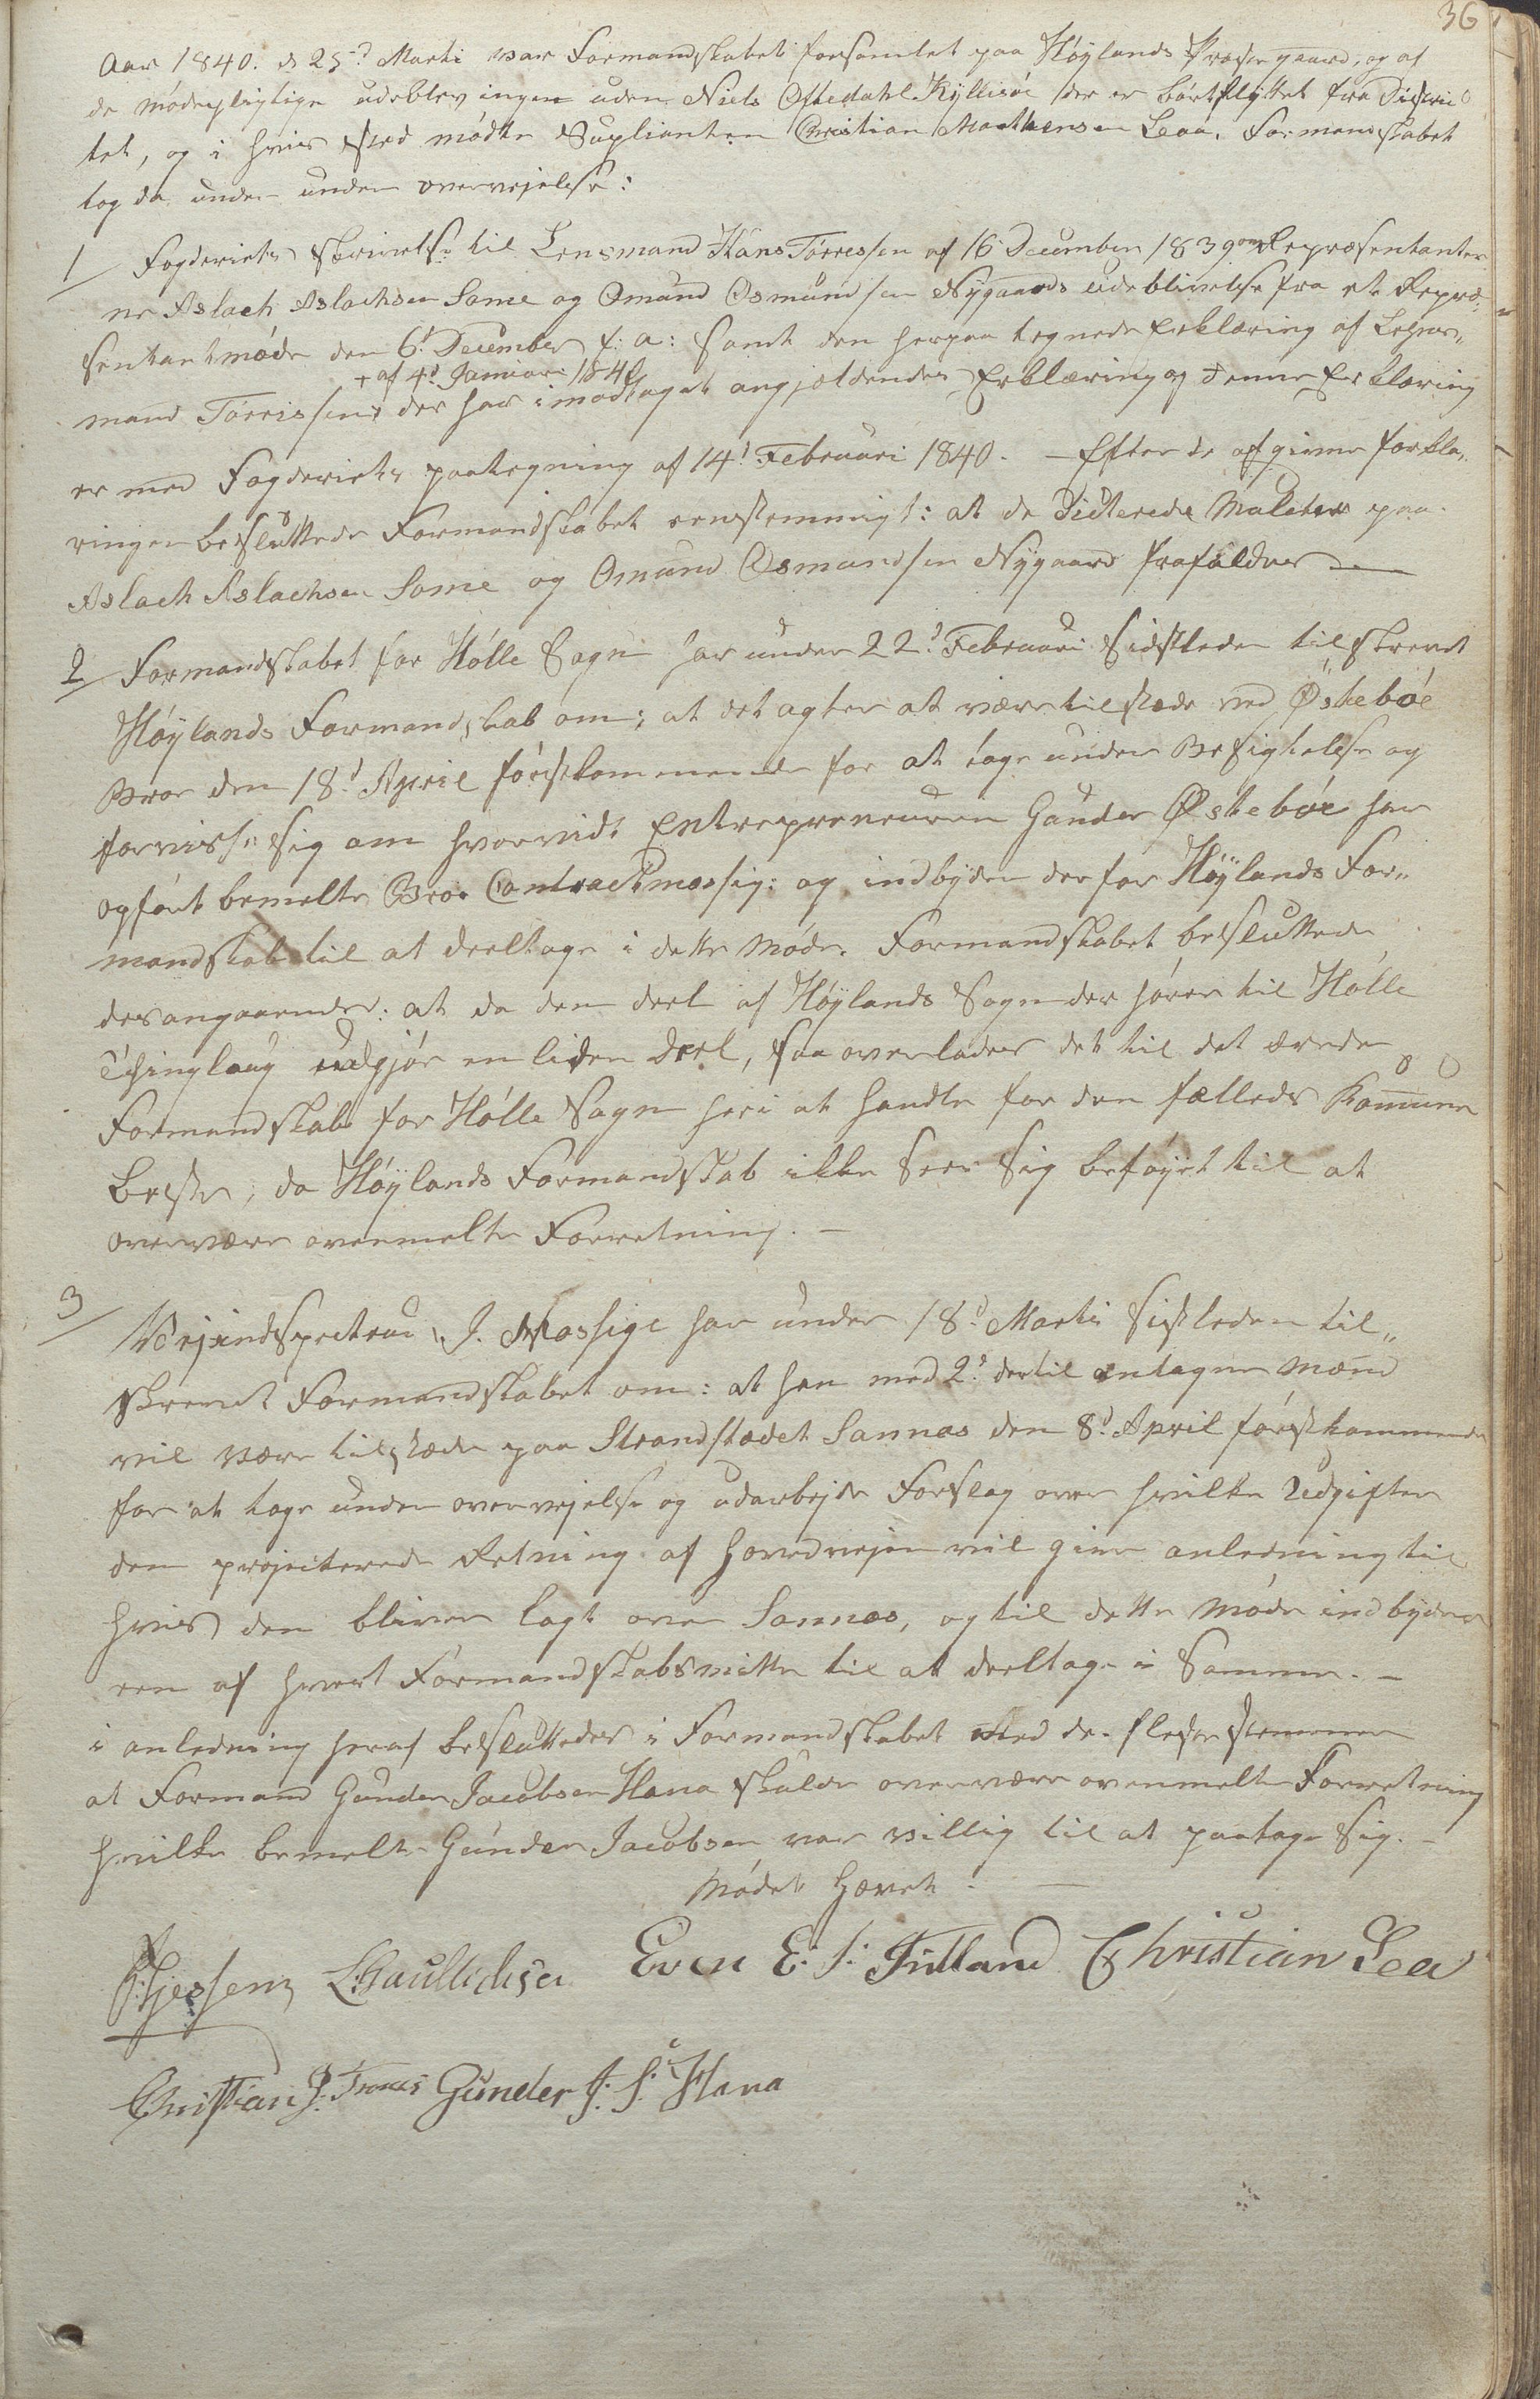 36
Aar 1840. d 25d Marti var Formandskabet forsamlet paa Høylands Præstegaard, og af
de mødepligtige udeblev ingen uden Niels Oftedahl Kyllisøe der er bortflyttet fra Distric
tet, og i hvis sted mødte Suplianten Christian Matthensen Leaa. Formandskabet
tog da under under overvejelse:
1/ Fogderiets skrivelse til Lensmand Hans Tórressen af 16 December 1839 om Repræsentanter
ne Aslach Aslachsen Some og Omund Osmundsen Nygaards udeblivelse fra et Repræ-
sentantmøde den 6d December f: a: samt den herpaa tegnede Erklæring af Lehns„
+ af 4d Januari 1840
mand Tórrissen + der har imodtaget angjældendes Erklæring og denne Erklæring
er med Fogderiets paategning af 14d Februari 1840. – Efter de afgivne forkla„
ringer besluttede Formandskabet eenstemmigt: at de dicterede Mulcter paa
Aslach Aslachsen Some og Omund Osmundsen Nygaard frafaldes —
2/ Formandskabet for Hólle Sogn har under 22d Februari Sidstleden tilskrevet
Høylands Formandskab om; at det agter at være tilstæde ved Østebøe
Broe den 18d April førstkommende for at tage under Besigtelse og
forvisse sig om hvorvidt Entrepreneuren Gunder Østebøe har
opført bemelte Broe Contractmæssig: og indbyder derfor Høylands For„
mandskab til at deeltage i dette Møde. Formandskabet besluttede
desangaaende: at da den deel af Høylands Sogn der hører til Hólle
Thinglaug udgjør en liden deel, saa overlades det til det ærede
Formandskab for Hólle Sogn heri at handle for den fælleds Komune
beste, da Høylands Formandskab ikke seer sig beføyet til at
overvære ovenmelte Forretning. –
3/ Vejindspecteur J. Mossige har under 18d Martii Sistleden til„
skrevet Formandskabet om: at han med 2de dertil antagne Mænd
vil være tilstæde paa Strandstædet Sannæs den 8d April førstkommende
for at tage under overvejelse og udarbejde Forslag over hvilke Udgifter
den projecterede Retning af Hovedvejen vil give anledning til
hvis den bliver lagt over Sannæs, og til dette Møde indbydes
een af hvert Formandskabs mitte til at deeltage i Samme. –
i anledning heraf besluttedes i Formandskabet med de fleste stemmer
at Formand Gunder Jacobsen Hana skulde overvære ovenmelte Forretning
hvilke bemelte Gunder Jacobsen var villig til at paatage sig. –
Mødet hævet. —
Even E: S: Tutland Christian Lea
Christian J. Gunder J: S: Hana